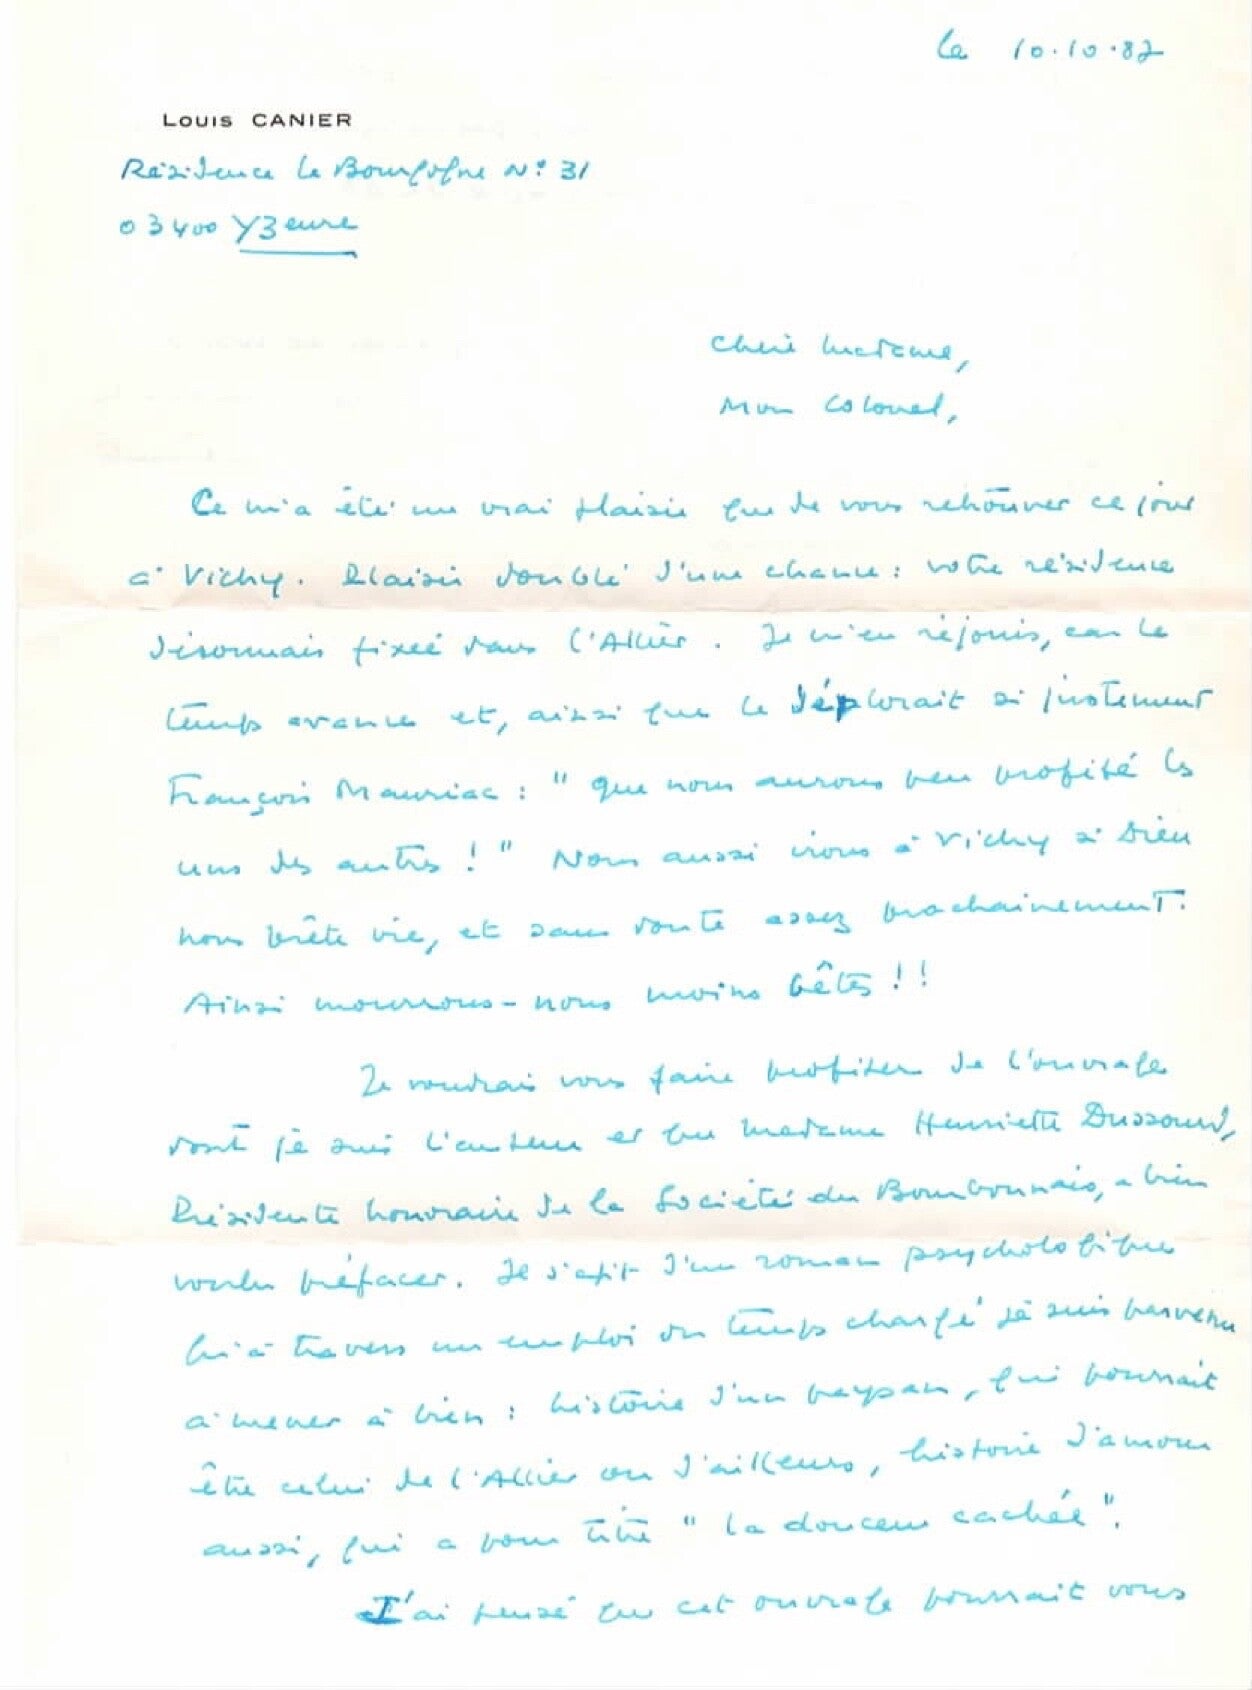 le 10.10.87
Louis CANIER
Résidence le Bourgogne N° 31
03400 Yzeure
Chère Madame,
Mon Colonel,
Ce m'a été un vrai plaisir que de vous retrouver ce jour
à Vichy. Plaisir doublé d'une chance : votre résidence
désormais fixée dans l'Allier. Je m'en réjouis, car le
temps avance et, ainsi que le déplorait si justement
François Mauriac : " que nous aurons peu profité les
uns des autres ! " Nous aussi irons à Vichy si Dieu
nous prête vie, et sans doute assez prochainement.
Ainsi mourrons-nous moins bêtes !!
Je voudrais vous faire profiter de l'ouvrage
dont je suis l'auteur et que Madame Henriette Dussourd,
Présidente honoraire de la Société du Bourbonnais, a bien
voulu préfacer. Il s'agit d'un roman psychologique
qu'à travers un emploi du temps chargé je suis parvenu
à mener à bien : histoire d'un paysan, qui pourrait
être celui de l'Allier ou d'ailleurs, histoire d'amour
aussi, qui a pour titre " la douceur cachée ".
J'ai pensé que cet ouvrage pourrait vous